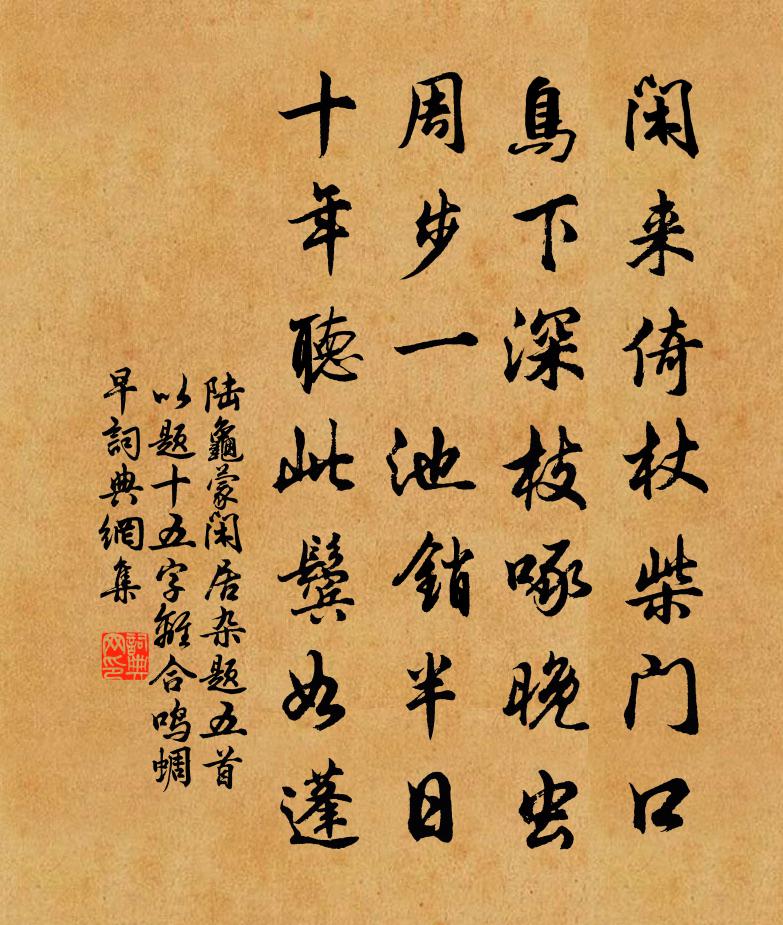 闲来倚杖柴门口
鳥下深枝啄晚虫
周步一池銷半日
十年聽此鬢如蓬
陆龜蒙闲居杂题五首
以题十五字離合鸣蜩
早詞典網集
詞典网印